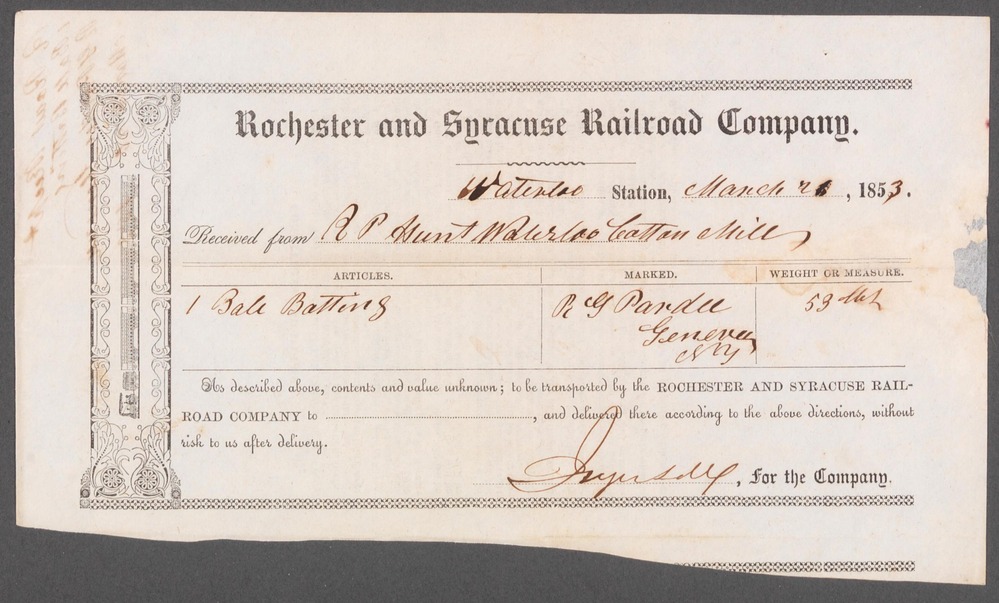 Rochester and Syracuse Railroad Company.
Waterloo Station, March 21, 1853.
Received from R P Hunt Waterloo Cotton Mill
ARTICLES. MARKED. WEIGHT OR MEASURE.
1 Bale Batting R G Pardee 53 lbs
Geneva
N Y
As described above, contents and value unknown; to be transported by the ROCHESTER AND SYRACUSE RAIL-
ROAD COMPANY to , and delivered there according to the above directions, without
risk to us after delivery.
Ingersoll, For the Company.